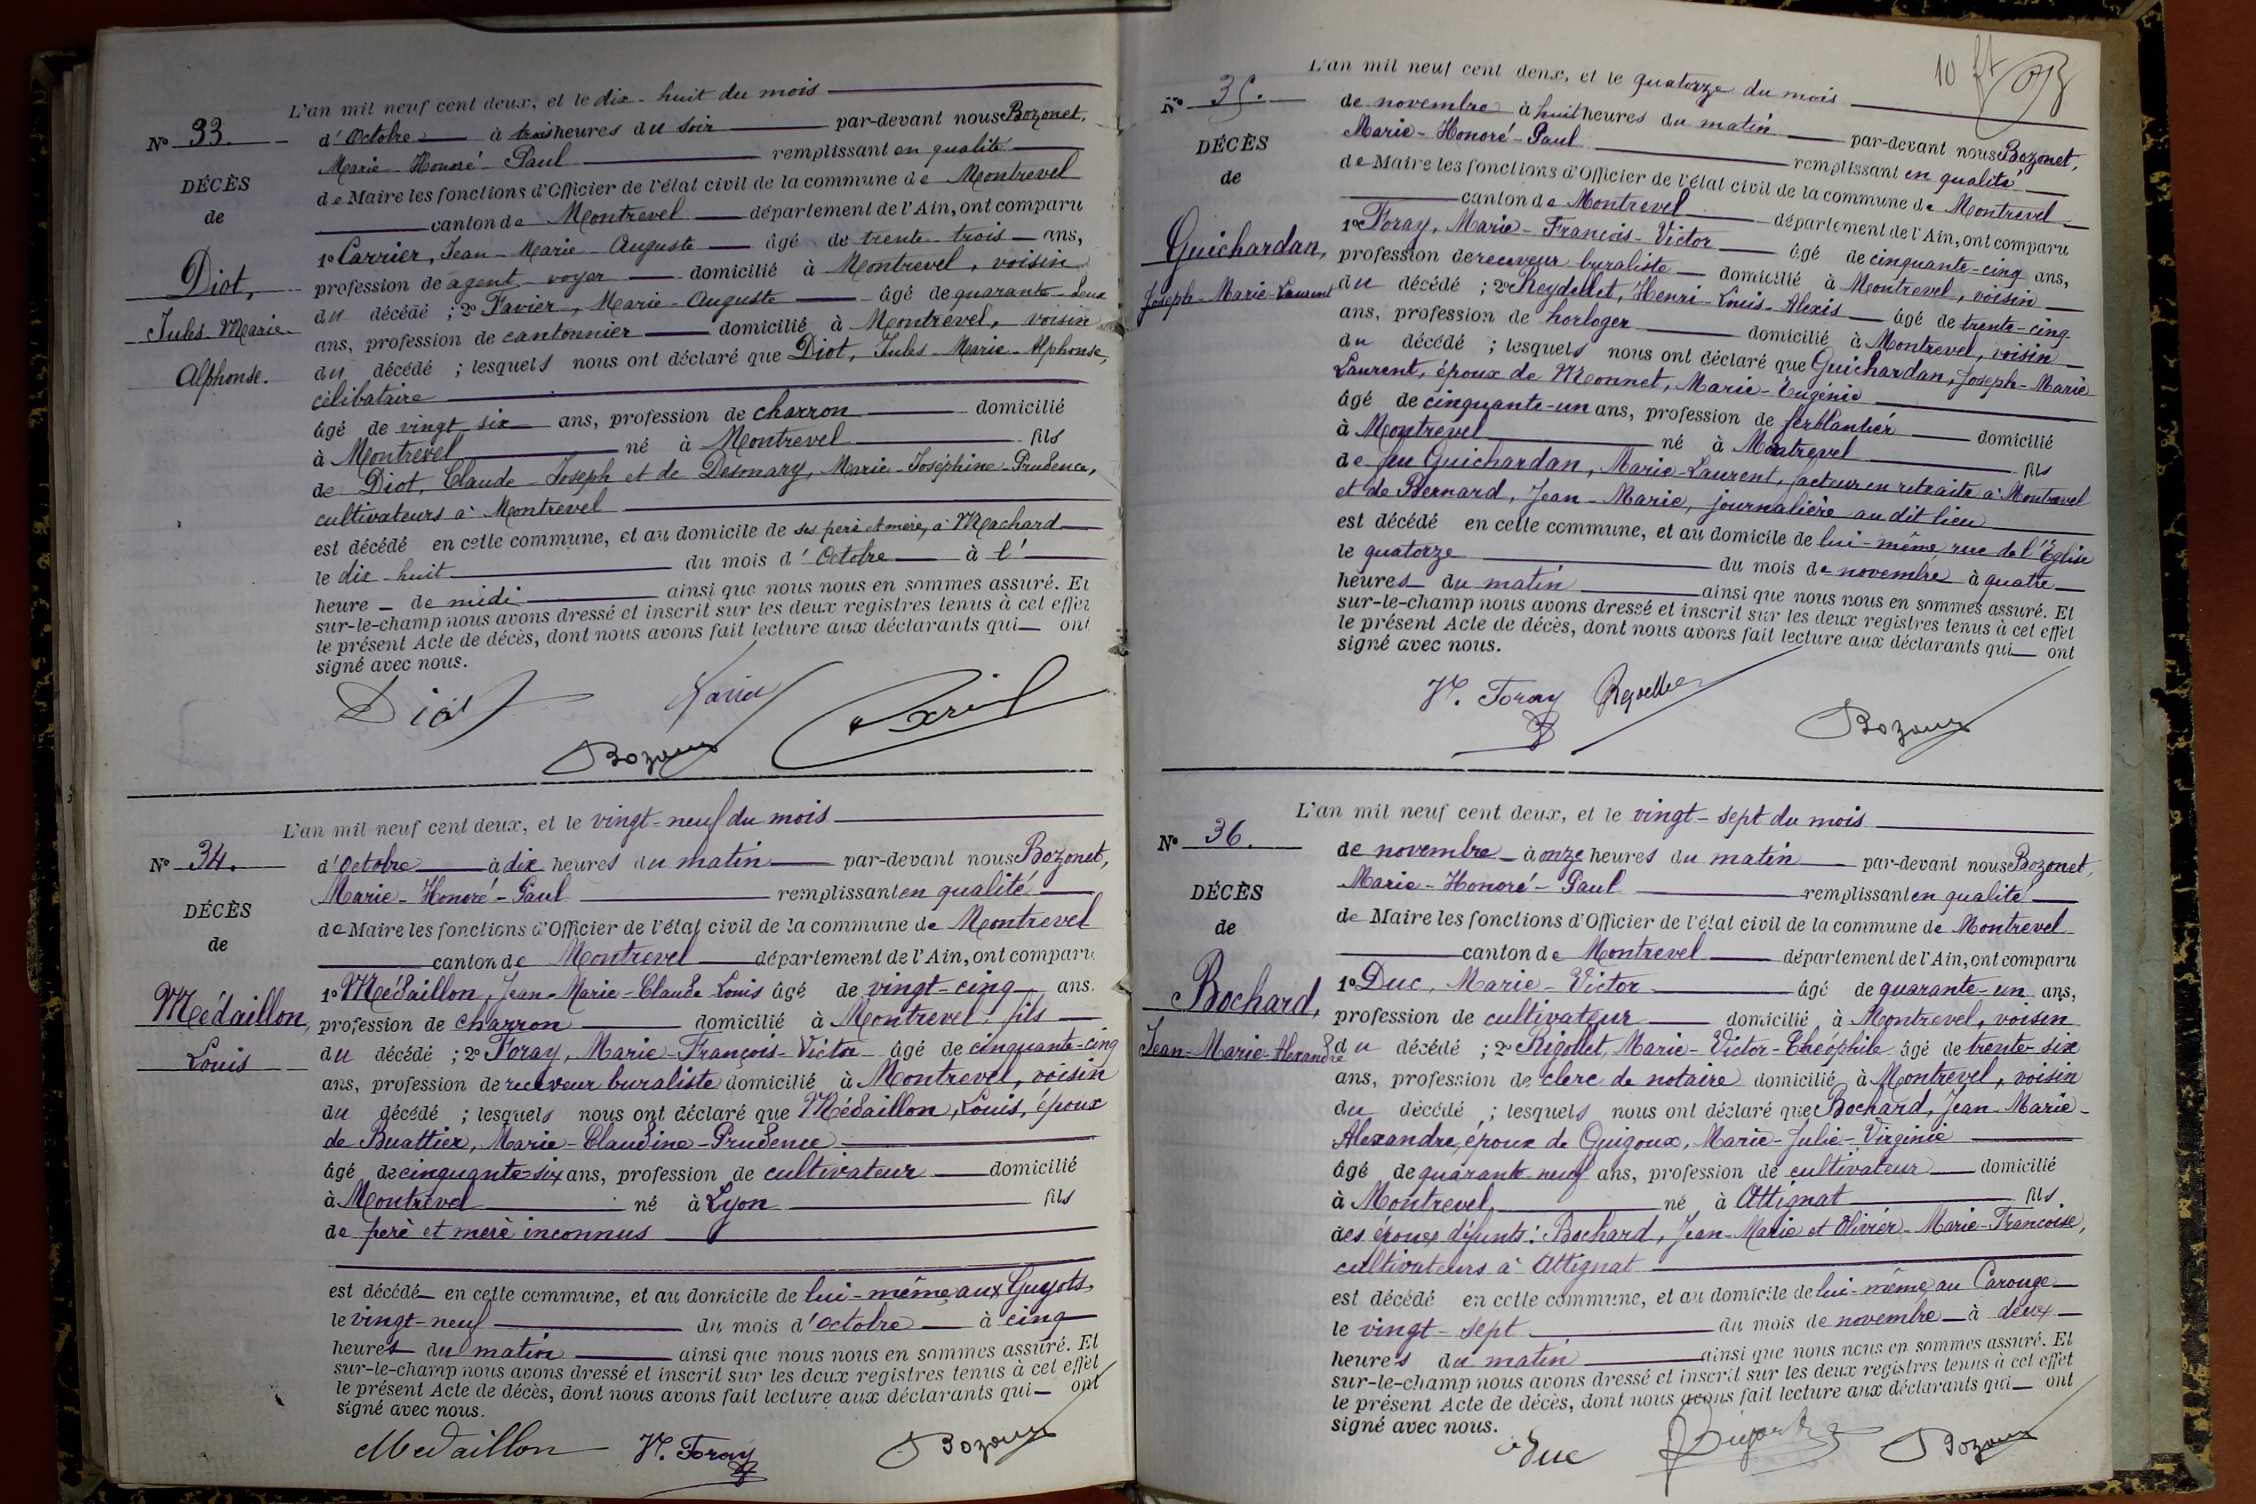 L'an mil neuf cent deux, et le dix-huit du mois
N° 33.
d'Octobre à trois heures du soir par-devant nous Bozonet,
Marie-Honoré-Paul remplissant en qualité
DÉCÈS
de Maire les fonctions d'Officier de l'état civil de la commune de Montrevel
de
canton de Montrevel département de l'Ain, ont comparu
1° Carrier, Jean-Marie-Auguste âgé de trente-trois ans,
Diot,
profession de agent-voyer domicilié à Montrevel, voisin
du décédé ; 2° Favier, Marie-Auguste âgé de quarante-deux
Jules-Marie-
ans, profession de cantonnier domicilié à Montrevel, voisin
Alphonse.
du décédé ; lesquels nous ont déclaré que Diot, Jules-Marie-Alphonse,
célibataire
âgé de vingt-six ans, profession de charron domicilié
à Montrevel né à Montrevel fils
de Diot, Claude-Joseph et de Desmary, Marie-Joséphine-Prudence,
cultivateurs à Montrevel
est décédé en cette commune, et au domicile de ses père et mère, à Machard
le dix-huit du mois d'Octobre à l'
heure de midi ainsi que nous nous en sommes assuré. Et
sur-le-champ nous avons dressé et inscrit sur les deux registres tenus à cet effet
le présent Acte de décès, dont nous avons fait lecture aux déclarants qui ont
signé avec nous.
Diot Favier
Bozonet
L'an mil neuf cent deux, et le vingt-neuf du mois
N° 34.
d'octobre à dix heures du matin par-devant nous Bozonet,
Marie-Honoré-Paul remplissant en qualité
DÉCÈS
de Maire les fonctions d'Officier de l'état civil de la commune de Montrevel
de
canton de Montrevel département de l'Ain, ont comparu
1° Médaillon, Jean-Marie-Claude-Louis âgé de vingt-cinq ans.
Médaillon,
profession de charron domicilié à Montrevel, fils
Louis
du décédé ; 2° Foray, Marie-François-Victor âgé de cinquante-cinq
ans, profession de receveur buraliste domicilié à Montrevel, voisin
du décédé ; lesquels nous ont déclaré que Médaillon, Louis, époux
de Buattier, Marie-Claudine-Prudence
âgé de cinquante-six ans, profession de cultivateur domicilié
à Montrevel né à Lyon fils
de père et mère inconnus
est décédé en cette commune, et au domicile de lui-même aux Guyots,
le vingt-neuf du mois d'octobre à cinq
heures du matin ainsi que nous nous en sommes assuré. Et
sur-le-champ nous avons dressé et inscrit sur les deux registres tenus à cet effet
le présent Acte de décès, dont nous avons fait lecture aux déclarants qui ont
signé avec nous.
Medaillon Vr. Foray Bozonet
10 ft
L'an mil neuf cent deux, et le quatorze du mois
N° 35.
de novembre à huit heures du matin par-devant nous Bozonet,
Marie-Honoré-Paul remplissant en qualité
DÉCÈS
de Maire les fonctions d'Officier de l'état civil de la commune de Montrevel
de
canton de Montrevel département de l'Ain, ont comparu
1° Foray, Marie-François-Victor âgé de cinquante-cinq ans,
Guichardan,
profession de receveur buraliste domicilié à Montrevel, voisin
Joseph-Marie-Laurent
du décédé ; 2° Reydellet, Henri-Louis-Alexis âgé de trente-cinq
ans, profession de horloger domicilié à Montrevel, voisin
du décédé ; lesquels nous ont déclaré que Guichardan, Joseph-Marie
Laurent, époux de Monnet, Marie-Eugénie
âgé de cinquante-un ans, profession de ferblantier domicilié
à Montrevel né à Montrevel fils
de feu Guichardan, Marie-Laurent, facteur en retraite à Montrevel
et de Bernard, Jean-Marie, journalière au dit lieu
est décédé en cette commune, et au domicile de lui-même, rue de l'Eglise
le quatorze du mois de novembre à quatre
heures du matin ainsi que nous nous en sommes assuré. Et
sur-le-champ nous avons dressé et inscrit sur les deux registres tenus à cet effet
le présent Acte de décès, dont nous avons fait lecture aux déclarants qui ont
signé avec nous.
Vr. Foray Reydellet
Bozonet
L'an mil neuf cent deux, et le vingt-sept du mois
N° 36.
de novembre à onze heures du matin par-devant nous Bozonet,
Marie-Honoré-Paul remplissant en qualité
DÉCÈS
de Maire les fonctions d'Officier de l'état civil de la commune de Montrevel
de
canton de Montrevel département de l'Ain, ont comparu
1° Duc, Marie-Victor âgé de quarante-un ans,
Bochard,
profession de cultivateur domicilié à Montrevel, voisin
Jean-Marie-Alexandre
du décédé ; 2° Rigollet, Marie-Victor-Théophile âgé de trente-six
ans, profession de clerc de notaire domicilié à Montrevel, voisin
du décédé ; lesquels nous ont déclaré que Bochard, Jean-Marie-
Alexandre, époux de Guigoux, Marie-Julie-Virginie
âgé de quarante-neuf ans, profession de cultivateur domicilié
à Montrevel né à Attignat fils
des époux défunts : Bochard, Jean-Marie et Olivier-Marie-Françoise,
cultivateurs à Attignat
est décédé en cette commune, et au domicile de lui-même au Carouge
le vingt-sept du mois de novembre à deux
heures du matin ainsi que nous nous en sommes assuré. Et
sur-le-champ nous avons dressé et inscrit sur les deux registres tenus à cet effet
le présent Acte de décès, dont nous avons fait lecture aux déclarants qui ont
signé avec nous.
Duc Bozonet